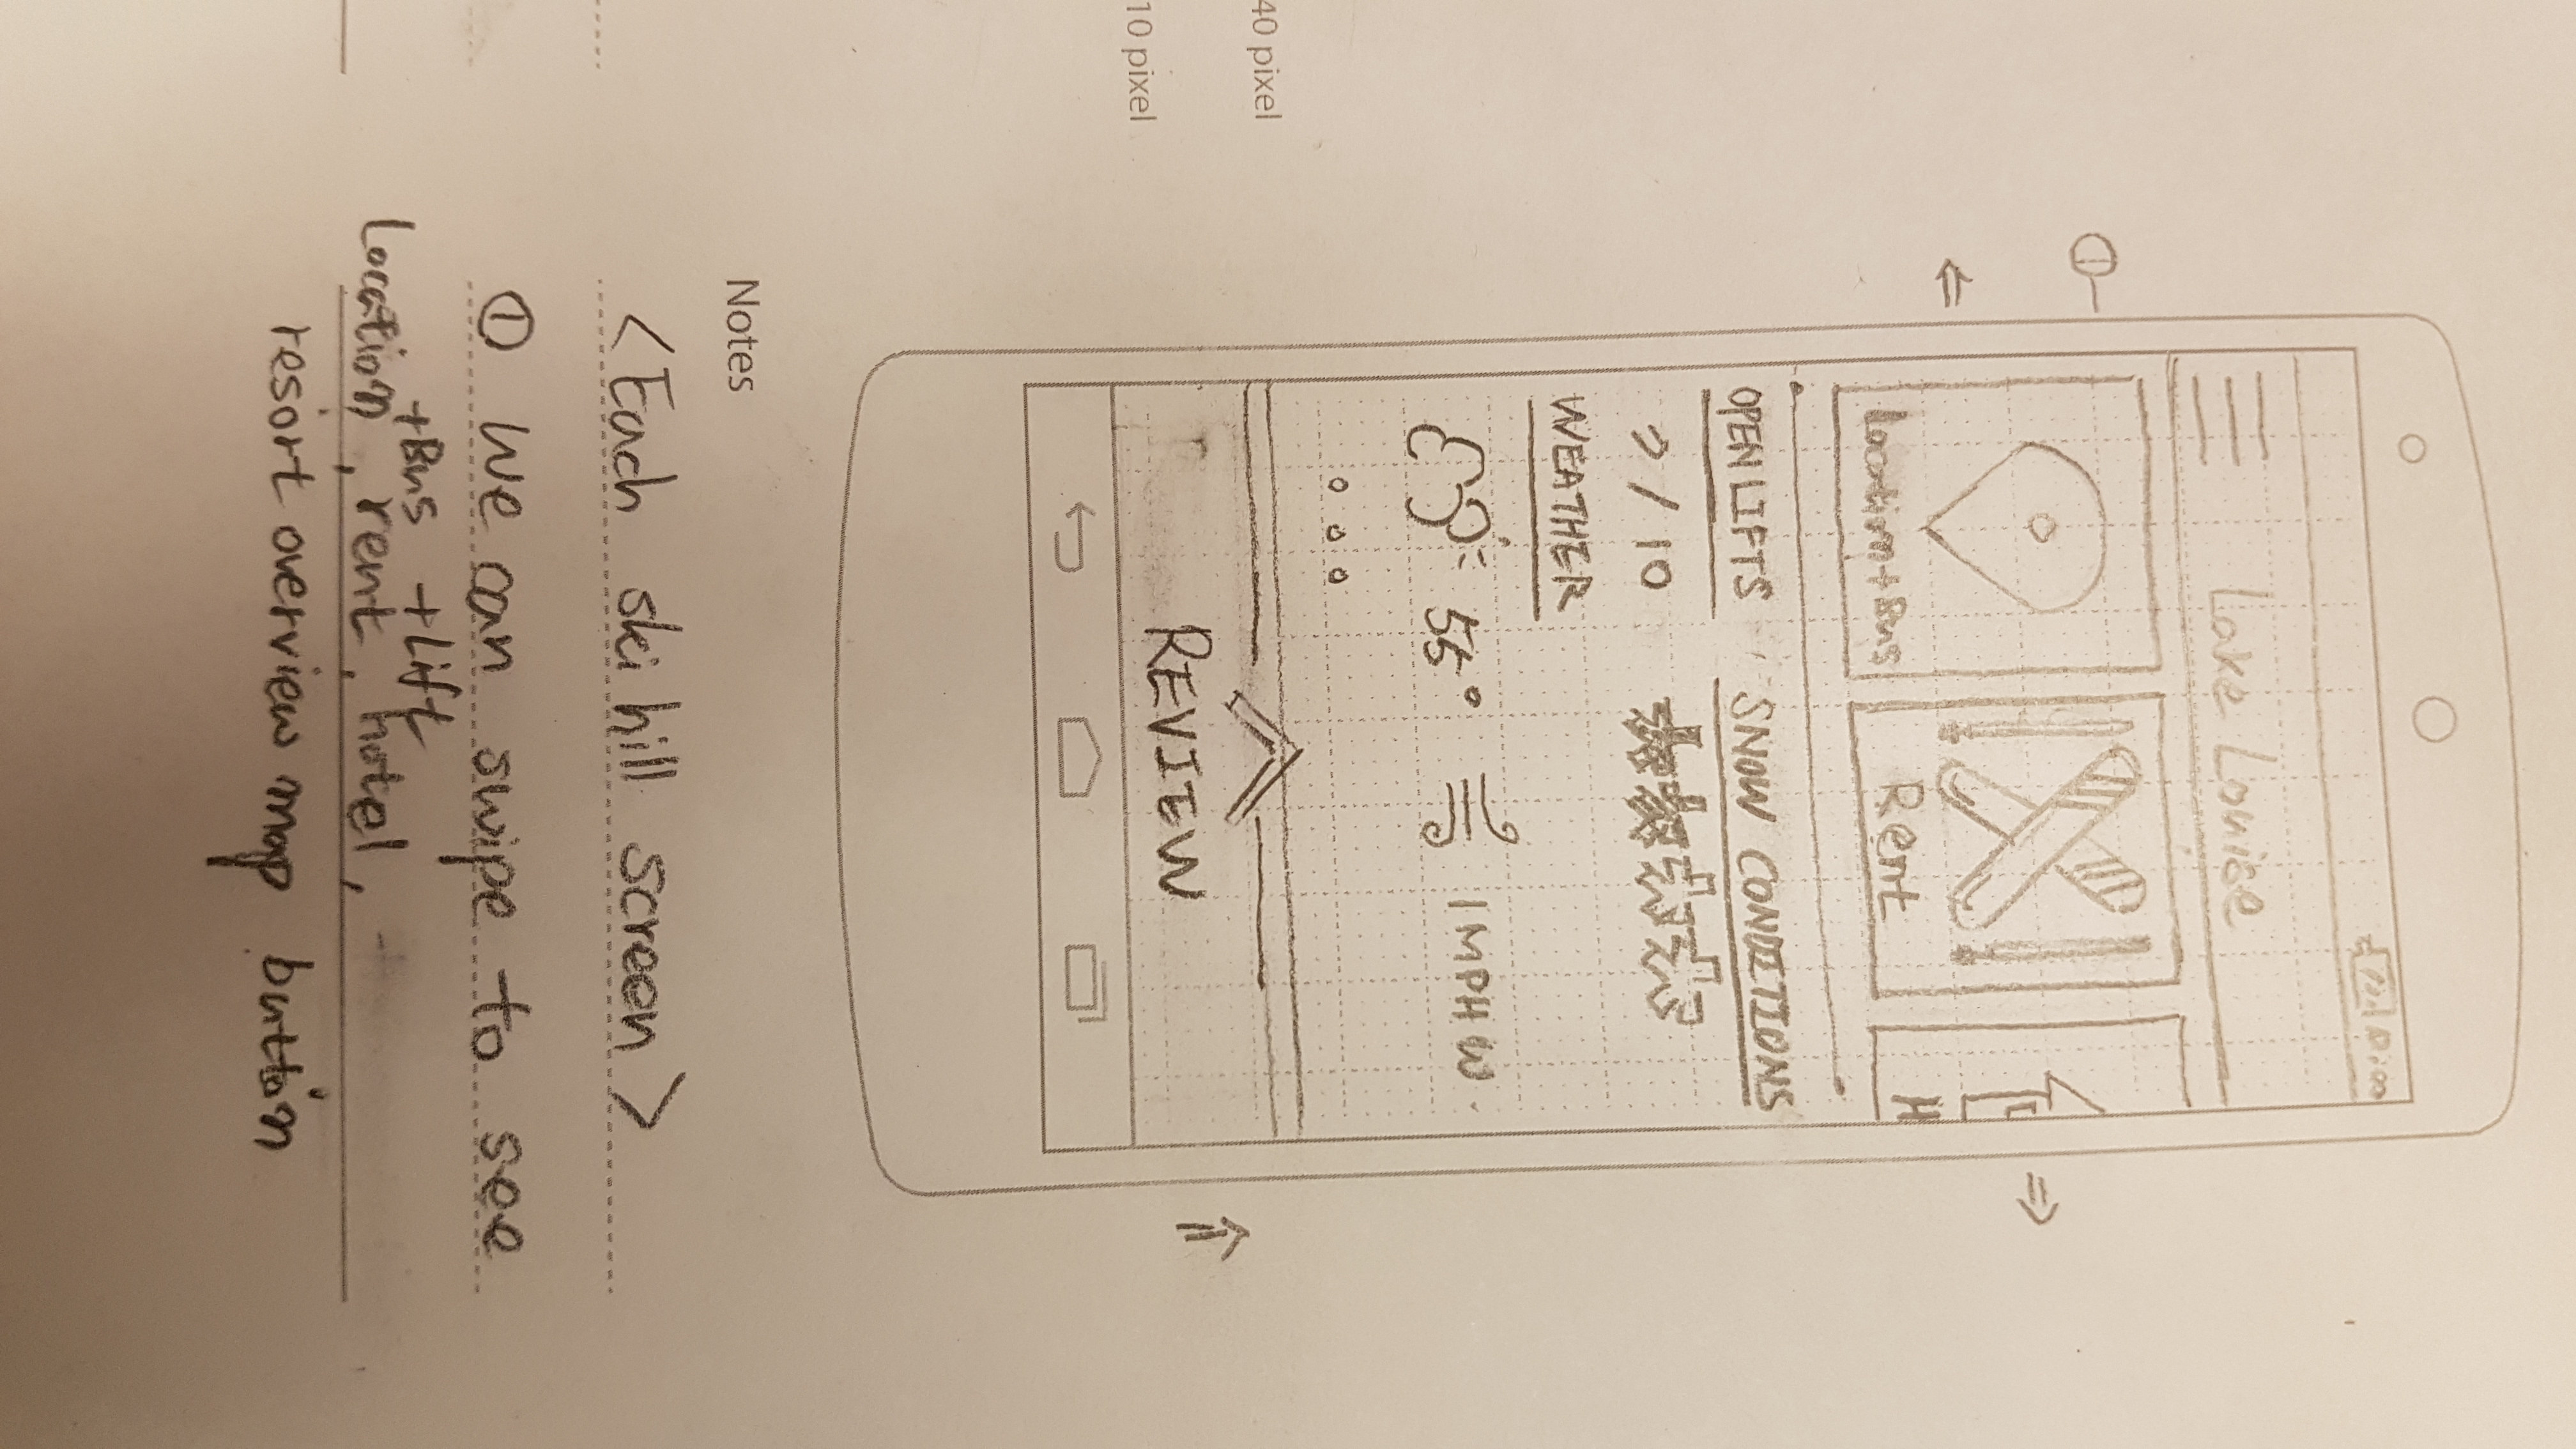 Lake Louise
Location+Bus
Rent
H
OPEN LIFTS
SNOW CONDITIONS
/ 10
WEATHER
55°
1 MPH W
REVIEW
40 pixel
10 pixel
Notes
<Each ski hill screen>
① We can swipe to see
+Bus +Lift
Location, rent, hotel,
resort overview map button